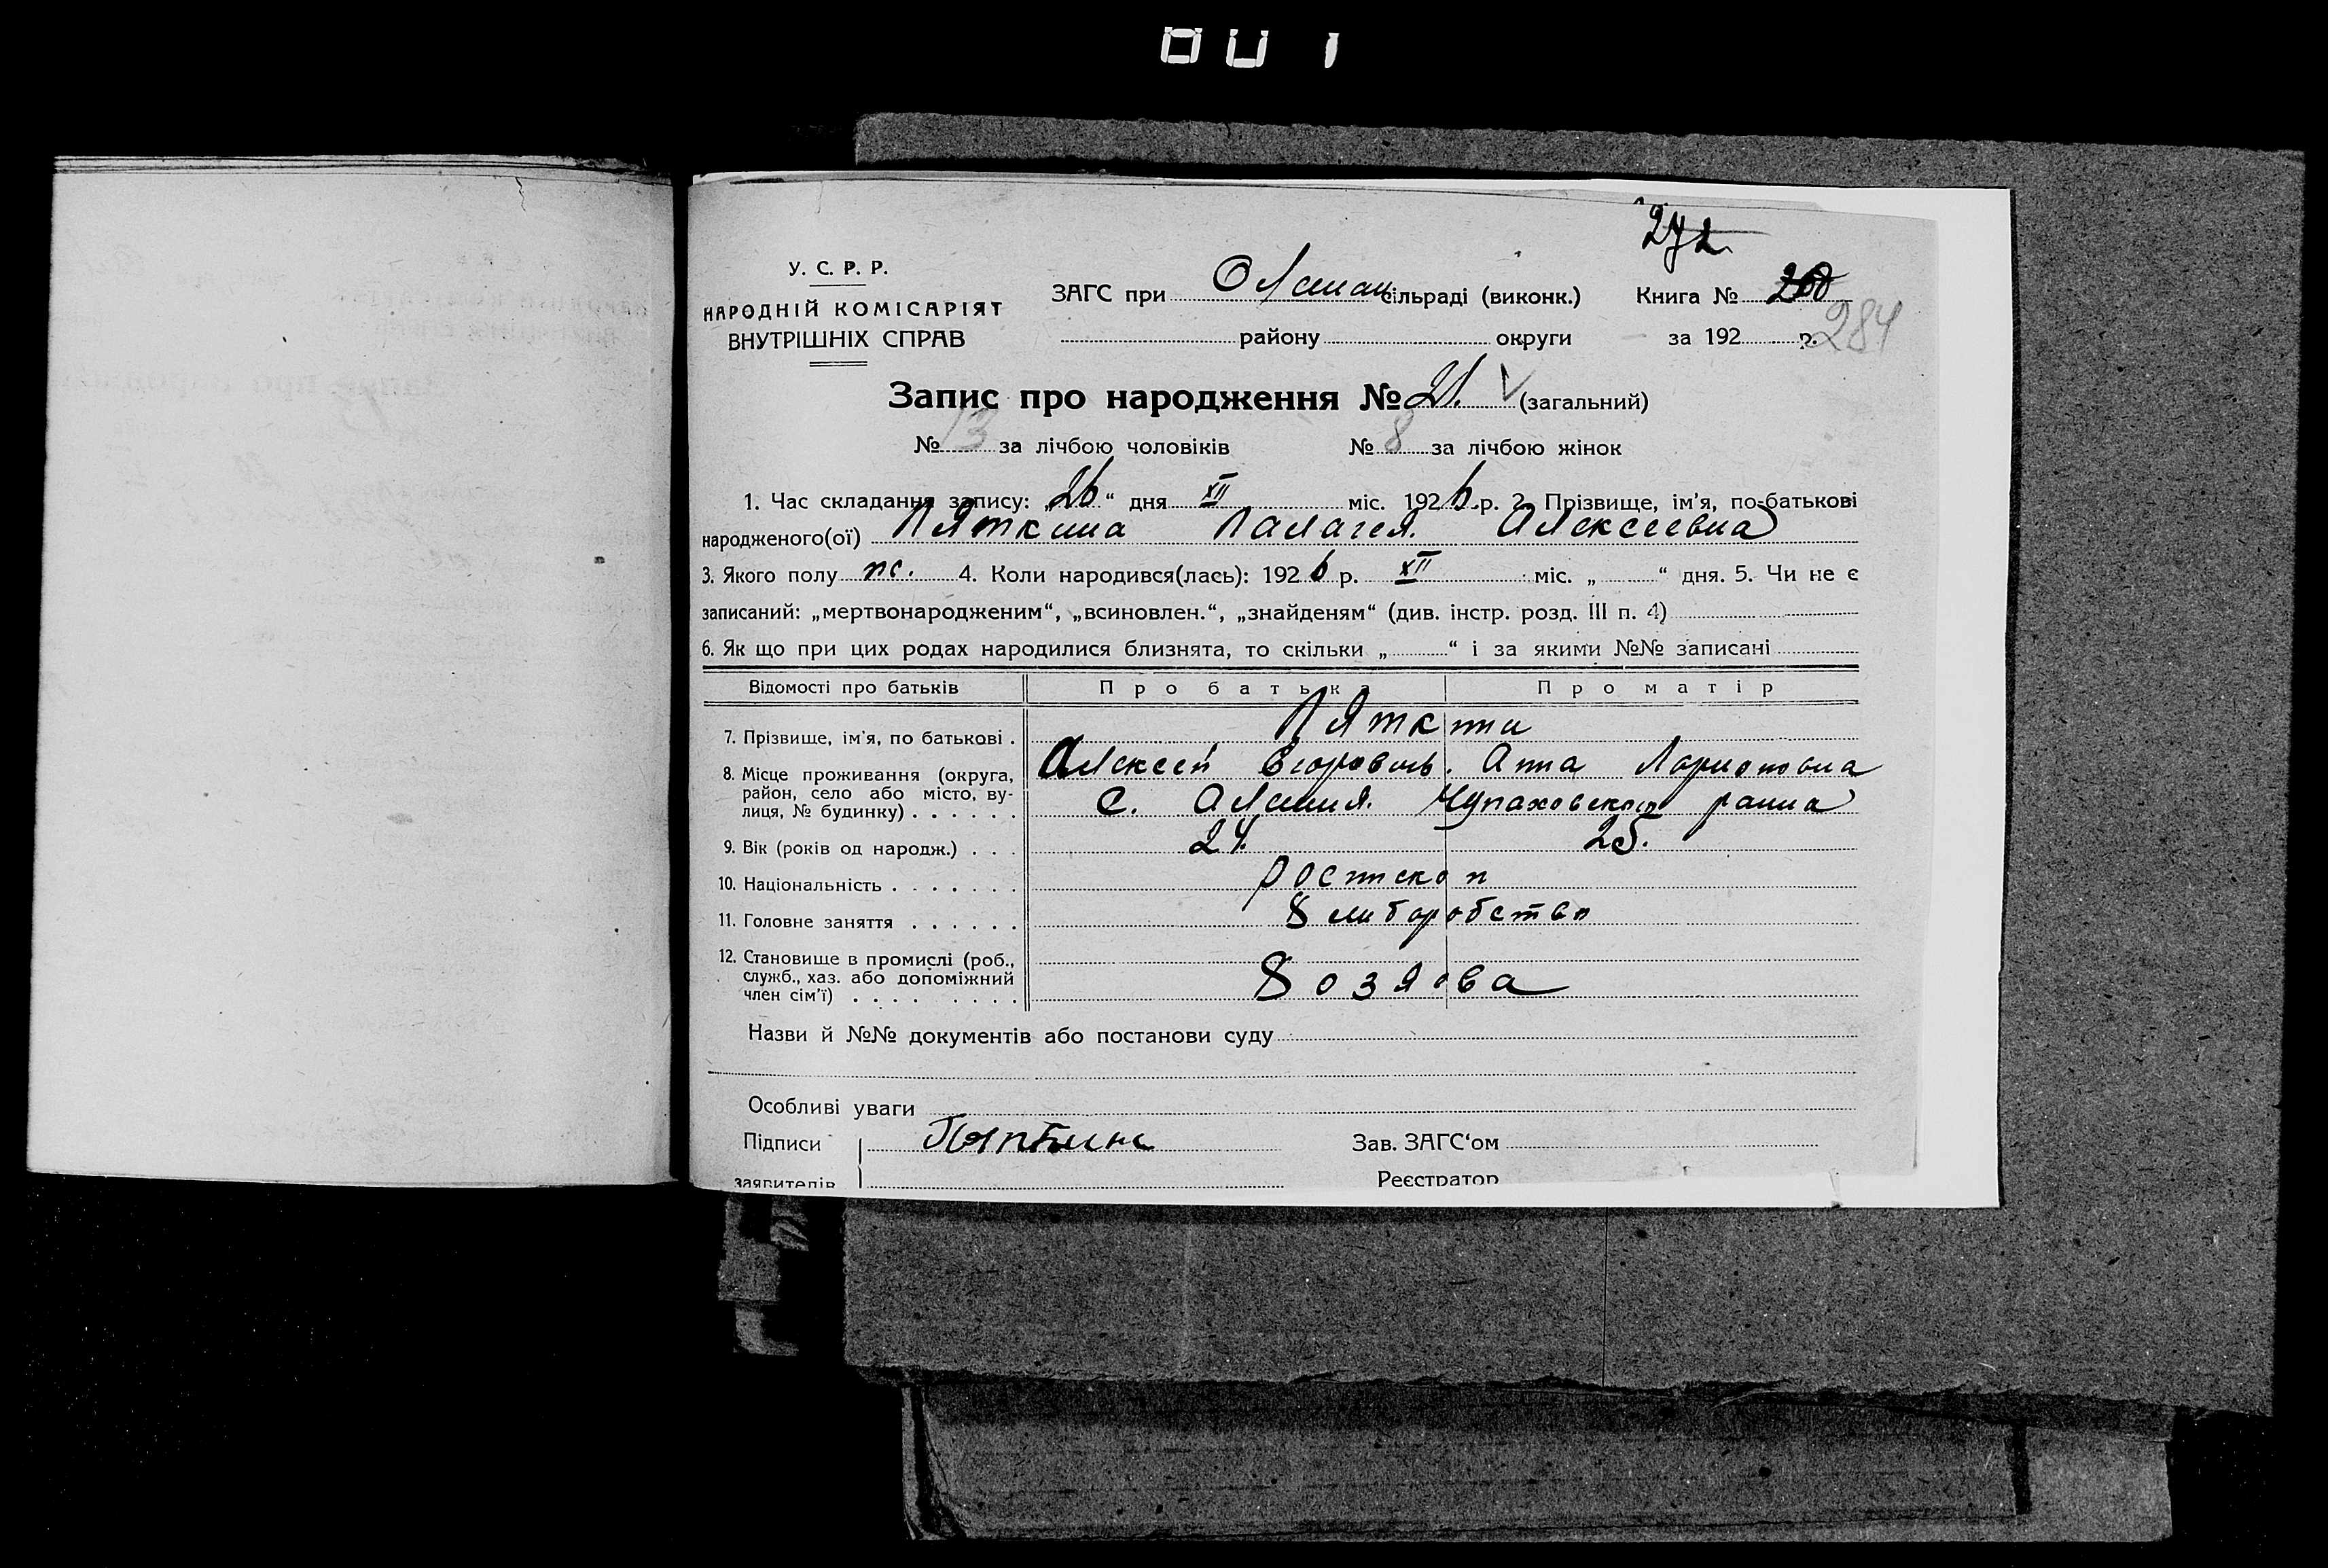 001
272
У. С. Р. Р.
НАРОДНІЙ КОМІСАРІЯТ
ВНУТРІШНІХ СПРАВ
ЗАГС при сільраді (виконк.) Книга №
району округи за 192 р. 284
Запис про народження № 21. (загальний)
№ 13 за лічбою чоловіків № 8 за лічбою жінок
1. Час складання запису: „26“ дня XII міс. 1926 р. 2. Прізвище, ім’я, по-батькові
народженого(ої) Пяткина Палагея. Алексеевна
3. Якого полу жс. 4. Коли народився(лась): 1926 р. XII міс. „ “ дня. 5. Чи не є
записаний: „мертвонародженим“, „всиновлен.“, „знайденям“ (див. інстр. розд. III п. 4)
6. Як що при цих родах народилися близнята, то скільки „ “ і за якими №№ записані
Відомості про батьків Про батька Про матір
7. Прізвище, ім’я, по батькові . Пяткини
Алексей Егоровичь. Анна Ларионовна
8. Місце проживання (округа, район, село або місто, вулиця, № будинку) . . . . . . с. Алешня. Чупаховского раина
9. Вік (років од народж.) . . . 24. 25.
10. Національність . . . . . . .
11. Головне заняття . . . . . . Хлиборобство
12. Становище в промислі (роб., служб., хаз. або допоміжний член сім’ї) . . . . . . . .
Назви й №№ документів або постанови суду
Особливі уваги
Підписи Пяткин Зав. ЗАГС‘ом
заявителів Реєстратор